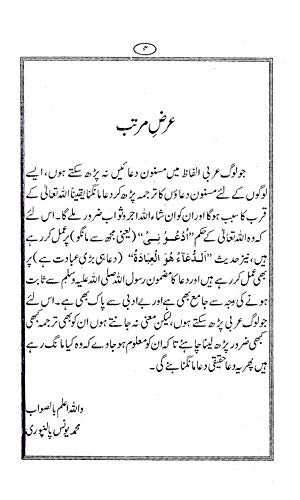 ۴
عرضِ مرتب
جو لوگ عربی الفاظ میں مسنون دعائیں نہ پڑھ سکتے ہوں، ایسے
لوگوں کے لئے مسنون دعاؤں کا ترجمہ پڑھ کر دعا مانگنا یقیناً اللہ تعالیٰ کے
قرب کا سبب ہوگا اور ان کو ان شاء اللہ اجر و ثواب ضرور ملے گا۔ اس لئے
کہ وہ اللہ تعالیٰ کے حکم ”اُدْعُوْنِیْ“ (یعنی مجھ سے مانگو) پر عمل کر رہے
ہیں، نیز حدیث ”اَلدُّعَاءُ هُوَ الْعِبَادَةُ“ (دعا ہی بڑی عبادت ہے) پر
بھی عمل کر رہے ہیں اور دعا کا مضمون رسول اللہ صلی اللہ علیہ وسلم سے ثابت
ہونے کی وجہ سے جامع بھی ہے اور بے ادبی سے پاک بھی ہے۔ اس لئے
جو لوگ عربی پڑھ سکتے ہوں، لیکن معنی نہ جانتے ہوں ان کو بھی ترجمہ کبھی
کبھی ضرور پڑھ لینا چاہئے تاکہ ان کو معلوم ہو جاوے کہ وہ کیا مانگ رہے
ہیں پھر یہ دعا حقیقی دعا مانگنا بنے گی۔
واللہ اعلم بالصواب
محمد یونس پالنپوری